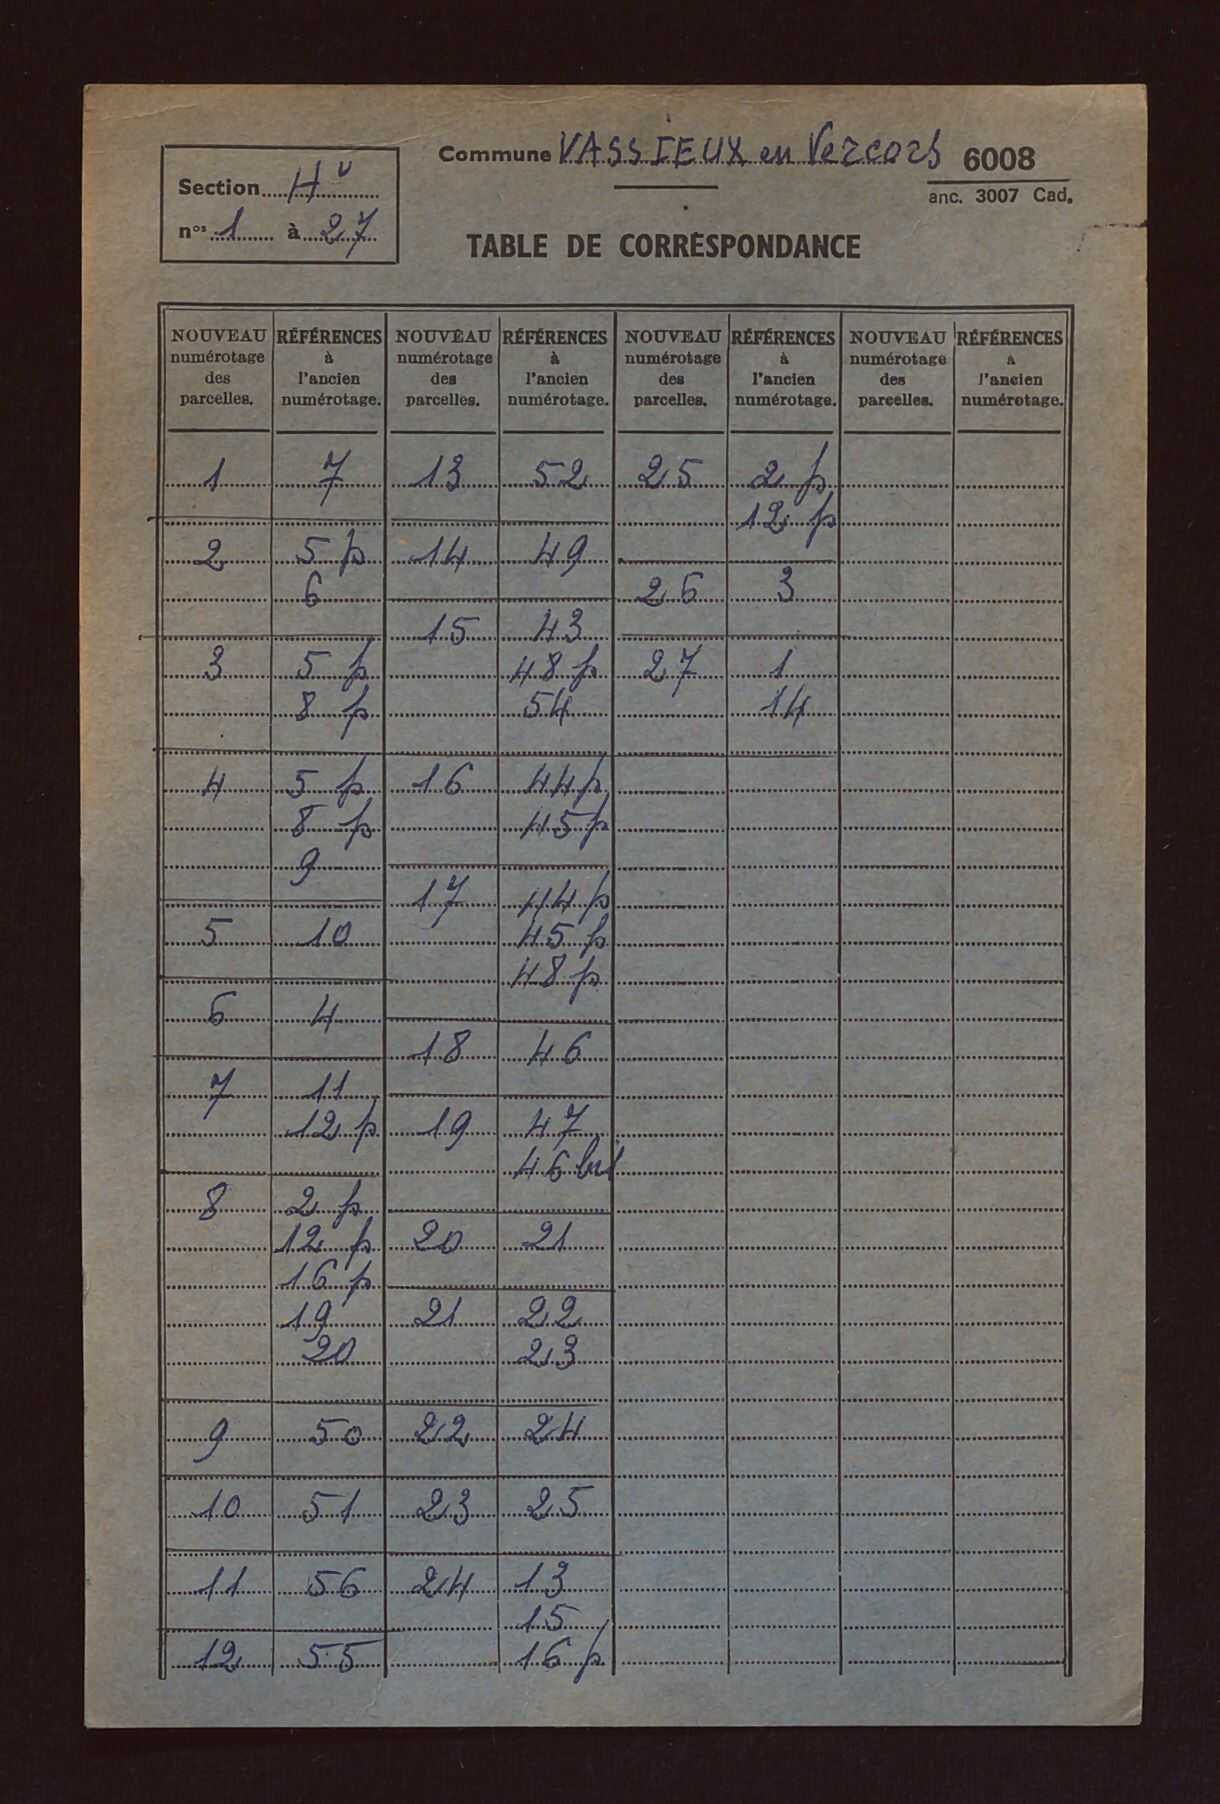 Commune VASSIEUX en Vercors 6008
anc. 3007 Cad.
Section H u
nos 1 à 27
TABLE DE CORRESPONDANCE
NOUVEAU RÉFÉRENCES NOUVEAU RÉFÉRENCES NOUVEAU RÉFÉRENCES NOUVEAU RÉFÉRENCES
numérotage à numérotage à numérotage à numérotage à
des l'ancien des l'ancien des l'ancien des l'ancien
parcelles. numérotage. parcelles. numérotage. parcelles. numérotage. parcelles. numérotage.
1 7 13 52 25 2 p
12 p
2 5 p 14 49
6 26 3
15 43
3 5 p 48 p 27 1
8 p 54 14
4 5 p 16 44 p
8 p 45 p
9
17 44 p
5 10 45 p
48 p
6 4
18 46
7 11
12 p 19 47
46 bis
8 2 p
12 p 20 21
16 p
19 21 22
20 23
9 50 22 24
10 51 23 25
11 56 24 13
15
12 55 16 p